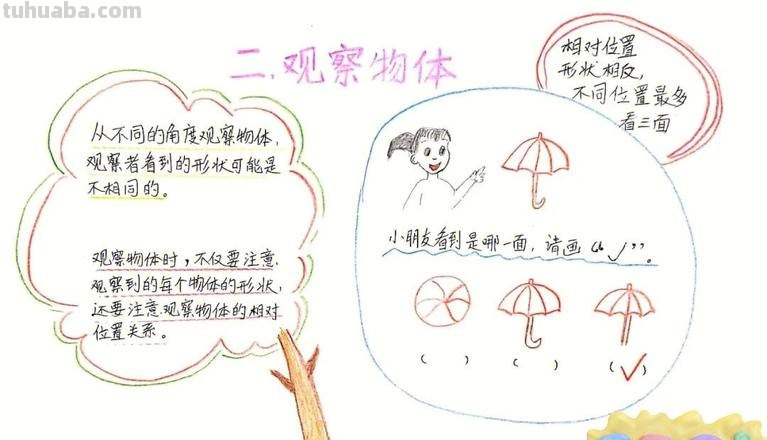 tuhuaba.com
二.观察物体
从不同的角度观察物体,
观察者看到的形状可能是
不相同的。
观察物体时,不仅要注意
观察到的每个物体的形状,
还要注意观察物体的相对
位置关系。
相对位置
形状相反,
不同位置最多
看三面
小朋友看到是哪一面,请画“✓”。
( ) ( ) (✓)